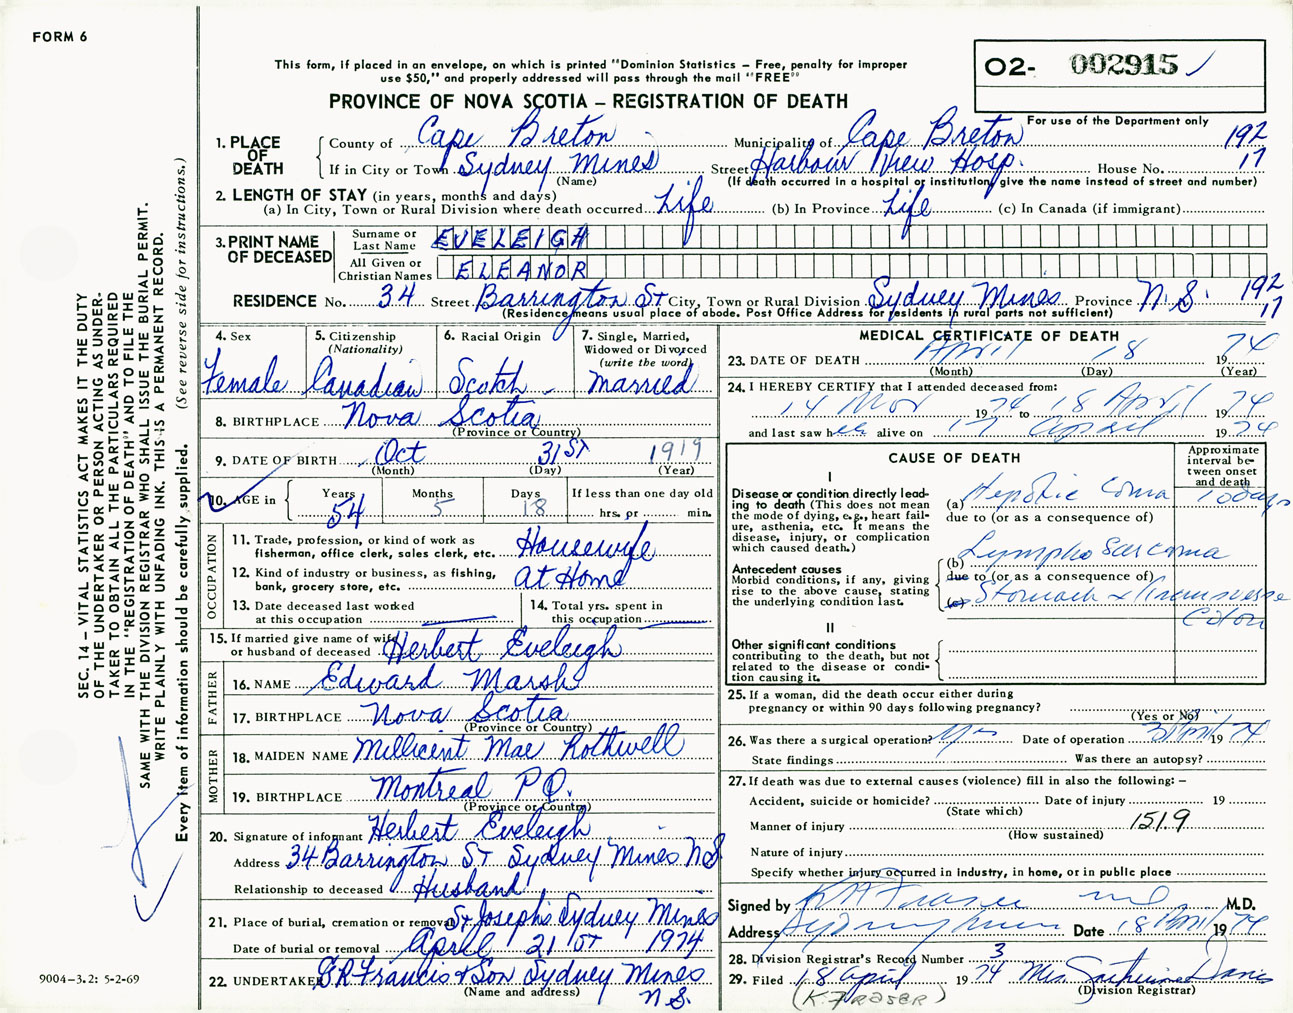 FORM 6
This form, if placed in an envelope, on which is printed "Dominion Statistics – Free, penalty for improper
use $50," and properly addressed will pass through the mail "FREE"
O2- 002915
PROVINCE OF NOVA SCOTIA – REGISTRATION OF DEATH
For use of the Department only
1. PLACE OF DEATH
County of Cape Breton Municipality of Cape Breton 192
If in City or Town Sydney Mines Street Harbour View Hosp. House No. 17
(Name) (If death occurred in a hospital or institution, give the name instead of street and number)
2. LENGTH OF STAY (in years, months and days)
(a) In City, Town or Rural Division where death occurred Life (b) In Province Life (c) In Canada (if immigrant)
3. PRINT NAME OF DECEASED
Surname or Last Name EVELEIGH
All Given or Christian Names ELEANOR
RESIDENCE No. 34 Street Barrington St City, Town or Rural Division Sydney Mines Province N.S. 192
17
(Residence means usual place of abode. Post Office Address for residents in rural parts not sufficient)
4. Sex Female
5. Citizenship (Nationality) Canadian
6. Racial Origin Scotch
7. Single, Married, Widowed or Divorced (write the word) Married
8. BIRTHPLACE Nova Scotia
(Province or Country)
9. DATE OF BIRTH Oct 31st 1919
(Month) (Day) (Year)
10. AGE in Years 54 Months 5 Days 18 If less than one day old hrs. or min.
OCCUPATION
11. Trade, profession, or kind of work as fisherman, office clerk, sales clerk, etc. Housewife
12. Kind of industry or business, as fishing, bank, grocery store, etc. At Home
13. Date deceased last worked at this occupation
14. Total yrs. spent in this occupation
15. If married give name of wife or husband of deceased Herbert Eveleigh
FATHER
16. NAME Edward Marsh
17. BIRTHPLACE Nova Scotia
(Province or Country)
MOTHER
18. MAIDEN NAME Millicent Mae Rothwell
19. BIRTHPLACE Montreal P.Q.
(Province or Country)
20. Signature of informant Herbert Eveleigh
Address 34 Barrington St Sydney Mines NS
Relationship to deceased Husband
21. Place of burial, cremation or removal St Joseph's Sydney Mines
Date of burial or removal April 21 st 1974
22. UNDERTAKER Francis & Son Sydney Mines
(Name and address) N.S.
MEDICAL CERTIFICATE OF DEATH
23. DATE OF DEATH April 18 1974
(Month) (Day) (Year)
24. I HEREBY CERTIFY that I attended deceased from:
14 Mar 1974 to 18 April 1974
and last saw her alive on 17 April 1974
CAUSE OF DEATH
Approximate interval between onset and death
I
Disease or condition directly leading to death (This does not mean the mode of dying, e.g., heart failure, asthenia, etc. It means the disease, injury, or complication which caused death.)
(a) Hepatic Coma 10 days
due to (or as a consequence of)
Antecedent causes
Morbid conditions, if any, giving rise to the above cause, stating the underlying condition last.
(b) Lympho Sarcoma
due to (or as a consequence of)
(c) Stomach & Transverse
Colon
II
Other significant conditions
contributing to the death, but not related to the disease or condition causing it.
25. If a woman, did the death occur either during
pregnancy or within 90 days following pregnancy?
(Yes or No)
26. Was there a surgical operation? Yes Date of operation 1974
State findings Was there an autopsy?
27. If death was due to external causes (violence) fill in also the following: –
Accident, suicide or homicide? Date of injury 19
(State which)
Manner of injury 151.9
(How sustained)
Nature of injury
Specify whether injury occurred in industry, in home, or in public place
Signed by Fraser M.D.
Address Sydney Mines Date 18 April 1974
28. Division Registrar's Record Number 3
29. Filed 18 April 1974 Mrs. Davis
(K. FRASER) (Division Registrar)
SEC. 14 – VITAL STATISTICS ACT MAKES IT THE DUTY
OF THE UNDERTAKER OR PERSON ACTING AS UNDER-
TAKER TO OBTAIN ALL THE PARTICULARS REQUIRED
IN THE "REGISTRATION OF DEATH" AND TO FILE THE
SAME WITH THE DIVISION REGISTRAR WHO SHALL ISSUE THE BURIAL PERMIT.
WRITE PLAINLY WITH UNFADING INK. THIS IS A PERMANENT RECORD.
Every item of information should be carefully supplied. (See reverse side for instructions.)
9004–3.2: 5-2-69